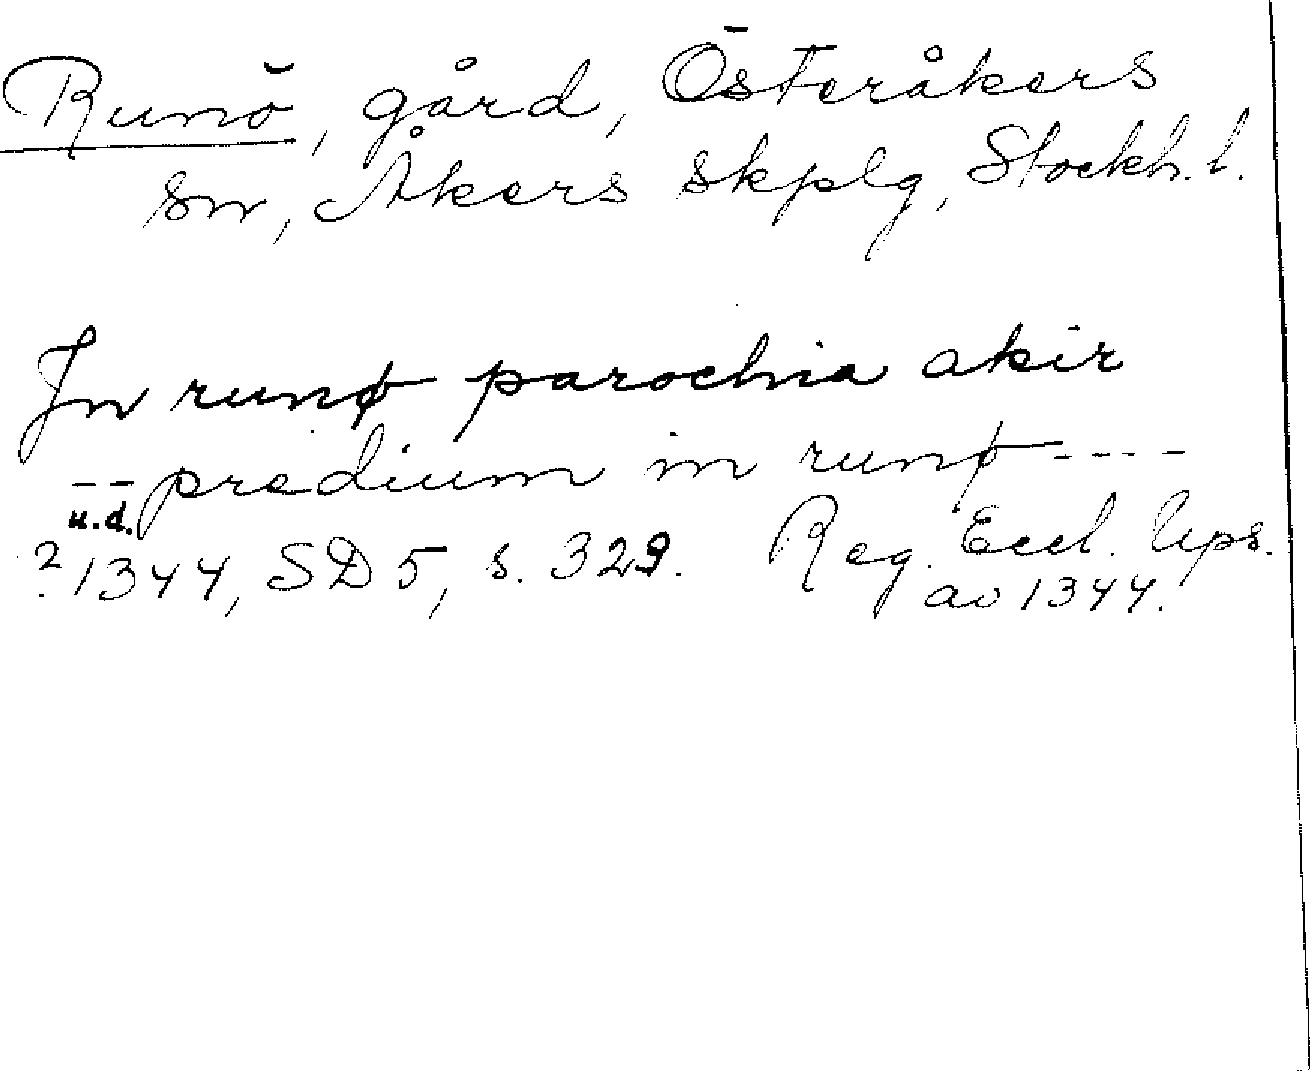 Runö, gård, Österåkers
sn, Åkers skplg, Stockh. l.
In runø parochia akir
-- predium in runø ----
u.d.
? 1344, SD 5, s. 329. Reg. Eccl. Ups.
av 1344.